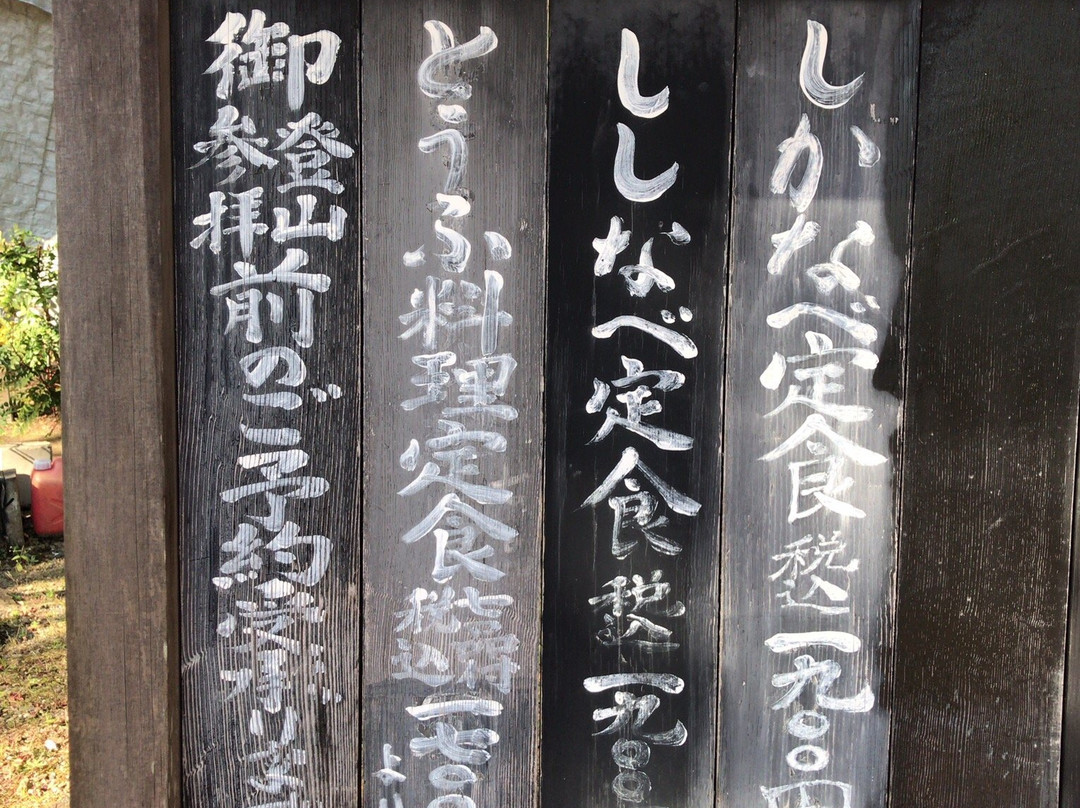 しかなべ定食 税込 一九〇〇円
ししなべ定食 税込 一九〇〇
とうふ料理定食 税込 一七〇〇
御登山参拝前のご予約受承りま